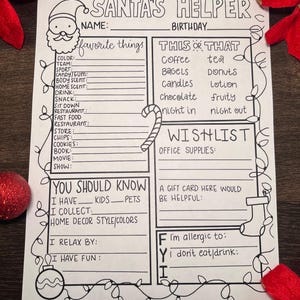 SANTA'S HELPER
NAME: BIRTHDAY
favorite things
COLOR:
TEAM:
SPORT:
CANDY/GUM:
BODY SCENT:
HOME SCENT:
DRINK:
SNACK:
SIT DOWN
RESTAURANT:
FAST FOOD
RESTAURANT:
STORE:
CHIPS:
COOKIES:
BOOK:
MOVIE:
SHOW:
THIS OR THAT
Coffee tea
Bagels Donuts
Candles Lotion
Chocolate fruity
night in night out
WISHLIST
OFFICE SUPPLIES:
A GIFT CARD HERE WOULD
BE HELPFUL:
YOU SHOULD KNOW
I HAVE KIDS PETS
I COLLECT
HOME DECOR STYLE/COLORS
I RELAX BY:
I HAVE FUN:
FYI
I'm allergic to:
I don't eat/drink: